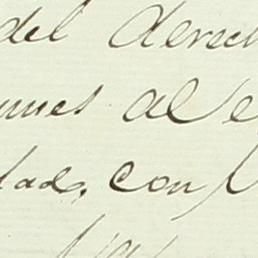 del derech
unes al e
dad, con